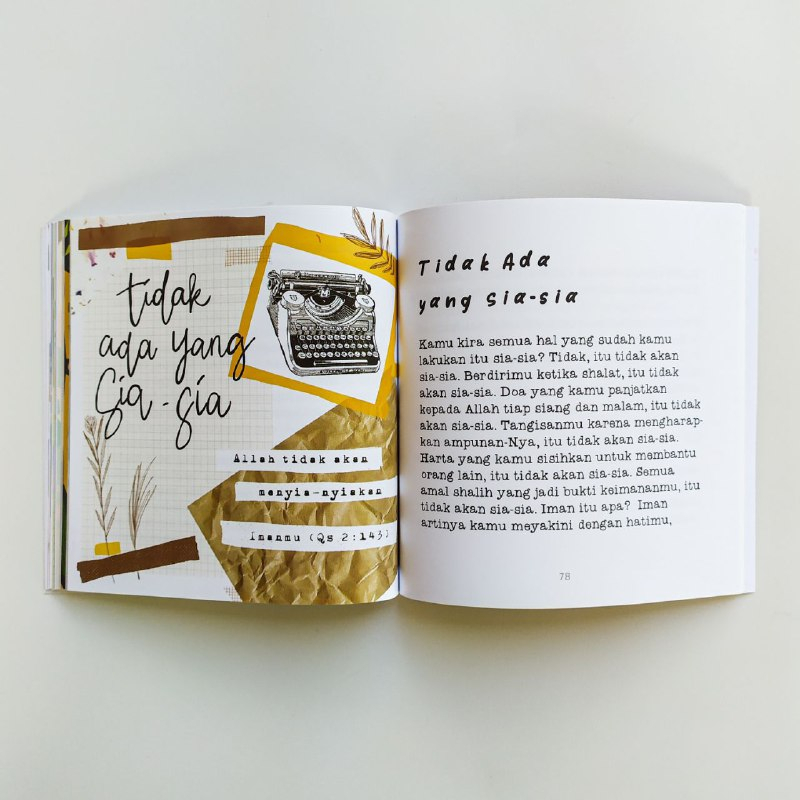 tidak
ada yang
sia-sia
Allah tidak akan
menyia-nyiakan
Imanmu (Qs 2:143)
Tidak Ada
yang sia-sia
Kamu kira semua hal yang sudah kamu
lakukan itu sia-sia? Tidak, itu tidak akan
sia-sia. Berdirimu ketika shalat, itu tidak
akan sia-sia. Doa yang kamu panjatkan
kepada Allah tiap siang dan malam, itu tidak
akan sia-sia. Tangisanmu karena mengharap-
kan ampunan-Nya, itu tidak akan sia-sia.
Harta yang kamu sisihkan untuk membantu
orang lain, itu tidak akan sia-sia. Semua
amal shalih yang jadi bukti keimananmu, itu
tidak akan sia-sia. Iman itu apa? Iman
artinya kamu meyakini dengan hatimu,
78